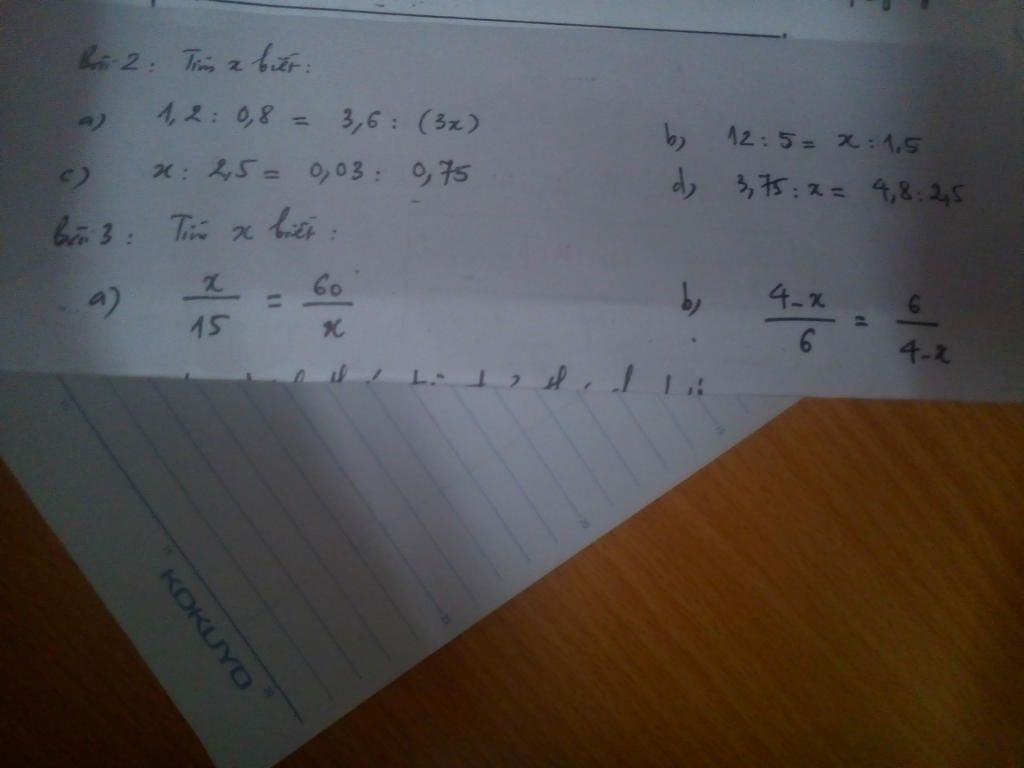 Bài 2 : Tìm x biết :
a) 1,2 : 0,8 = 3,6 : (3x)
b, 12 : 5 = x : 1,5
c) x : 2,5 = 0,03 : 0,75
d, 3,75 : x = 4,8 : 2,5
Bài 3 : Tìm x biết :
a) x/15 = 60/x
b, 4-x/6 = 6/4-x
KOKUYO